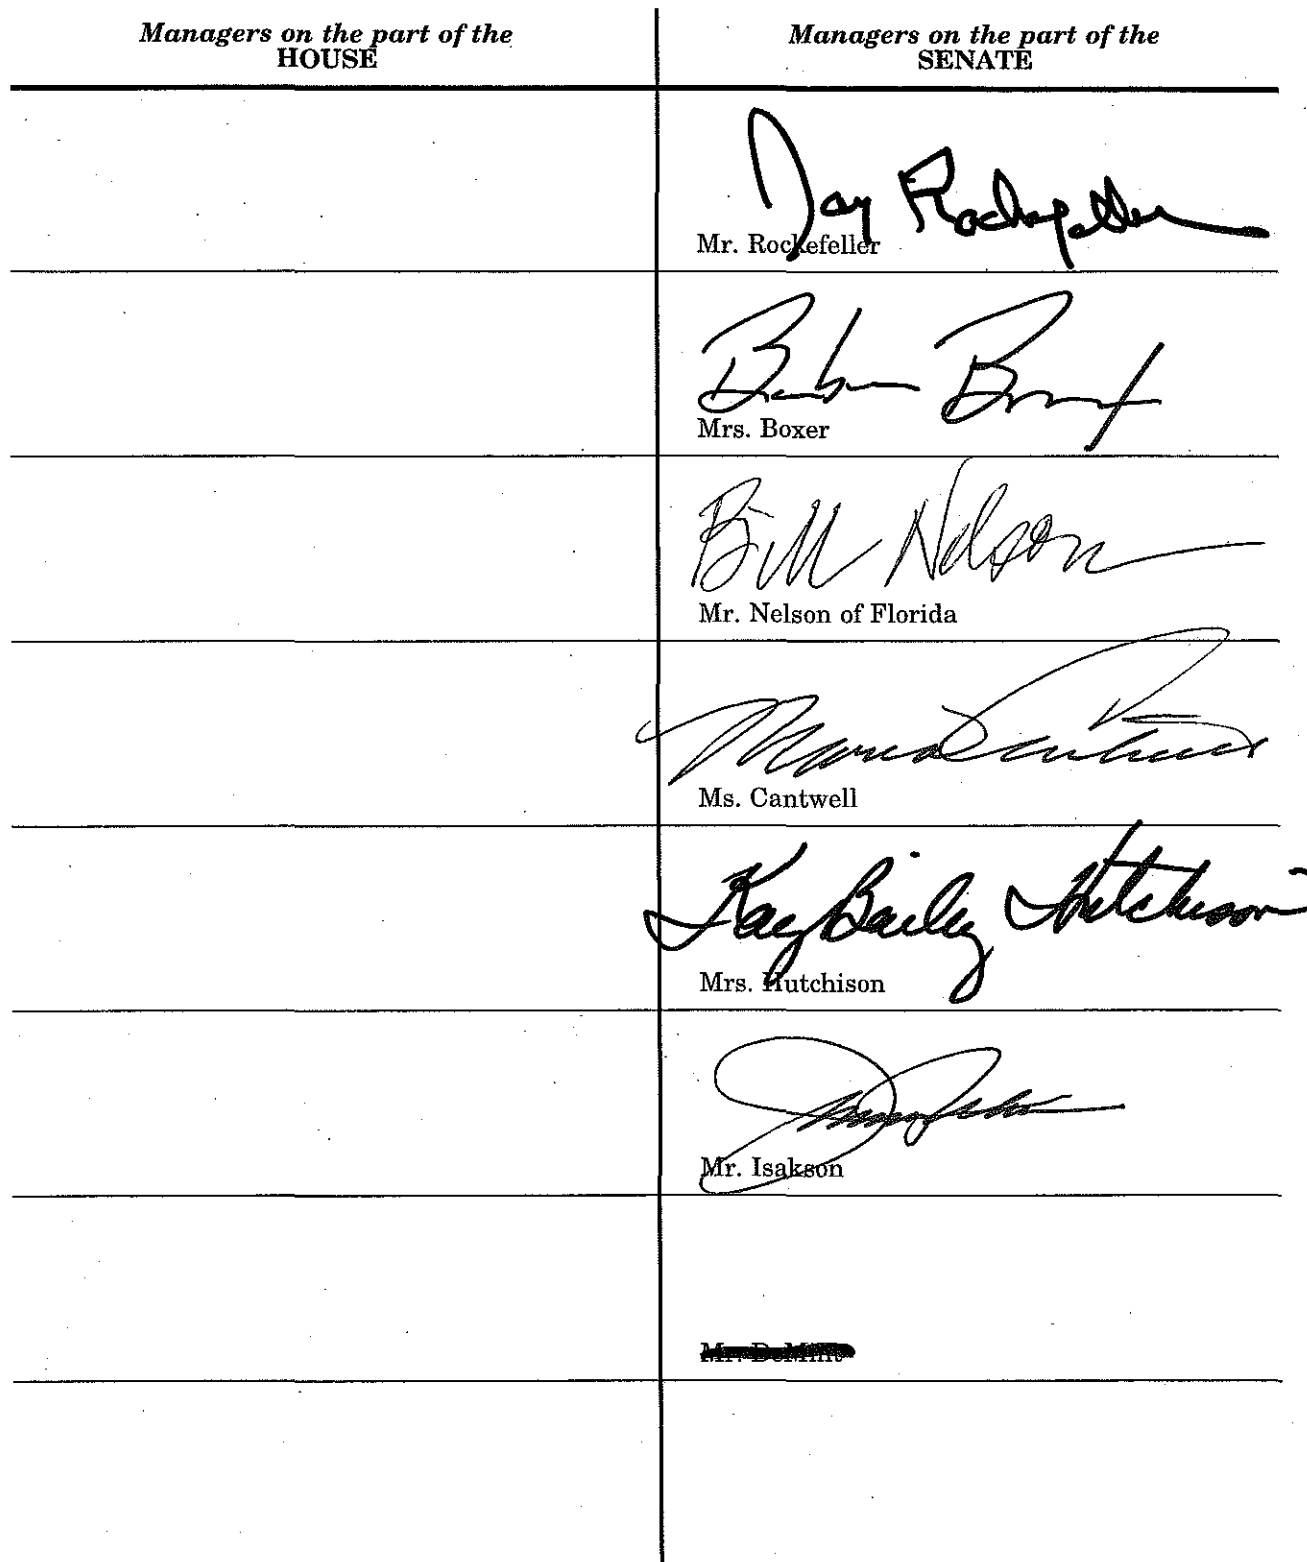 Managers on the part of the
HOUSE
Managers on the part of the
SENATE
Jay Rockefeller
Mr. Rockefeller
Barbara Boxer
Mrs. Boxer
Bill Nelson
Mr. Nelson of Florida
Maria Cantwell
Ms. Cantwell
Kay Bailey Hutchison
Mrs. Hutchison
Mr. Isakson
Mr. DeMint